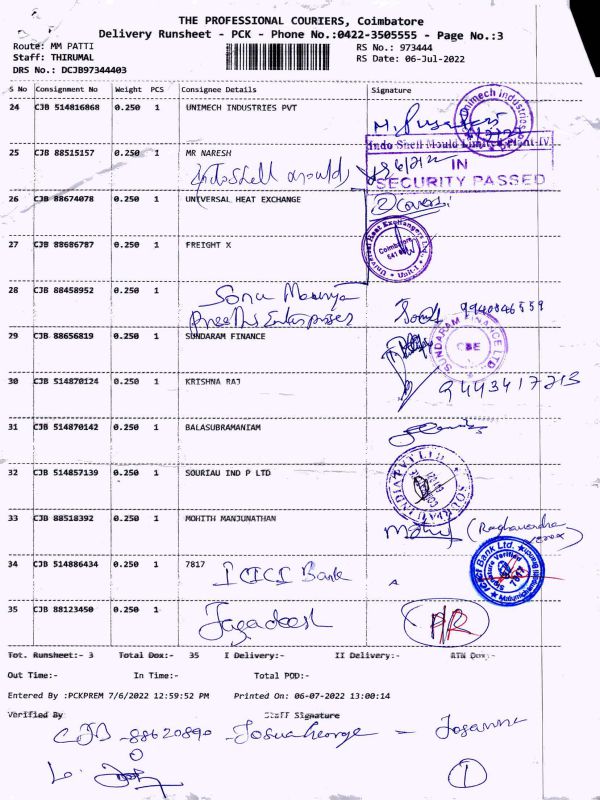 THE PROFESSIONAL COURIERS, Coimbatore
Delivery Runsheet - PCK - Phone No.:0422-3505555 - Page No.:3
Route: MM PATTI
RS No.: 973444
Staff: THIRUMAL
RS Date: 06-Jul-2022
DRS No.: DCJB97344403
S No Consignment No Weight PCS Consignee Details Signature
24 CJB 514816868 0.250 1 UNIMECH INDUSTRIES PVT
Unimech Industries
25 CJB 88515157 0.250 1 MR NARESH
Indo Shell Mould Limited, Plant-IV
IN
SECURITY PASSED
Indoshell mould
26 CJB 88674078 0.250 1 UNIVERSAL HEAT EXCHANGE
2 Covers
27 CJB 88686787 0.250 1 FREIGHT X
Universal Heat Exchangers
Coimbatore
Unit-1
28 CJB 88458952 0.250 1
Sonu
9940846559
Enterprises
29 CJB 88656819 0.250 1 SUNDARAM FINANCE
SUNDARAM FINANCE LTD
CBE
30 CJB 514870124 0.250 1 KRISHNA RAJ
9443417213
31 CJB 514870142 0.250 1 BALASUBRAMANIAM
32 CJB 514857139 0.250 1 SOURIAU IND P LTD
SOURIAU INDIA PVT LTD
33 CJB 88518392 0.250 1 MOHITH MANJUNATHAN
34 CJB 514886434 0.250 1 7817
ICICI Bank
ICICI Bank Ltd.
Signature Verified
35 CJB 88123450 0.250 1
Jagadeesh
Tot. Runsheet:- 3 Total Dox:- 35 I Delivery:- II Delivery:- RTN Dox:-
Out Time:- In Time:- Total POD:-
Entered By :PCKPREM 7/6/2022 12:59:52 PM Printed On: 06-07-2022 13:00:14
Verified By Staff Signature
CJB -88620890 -
1